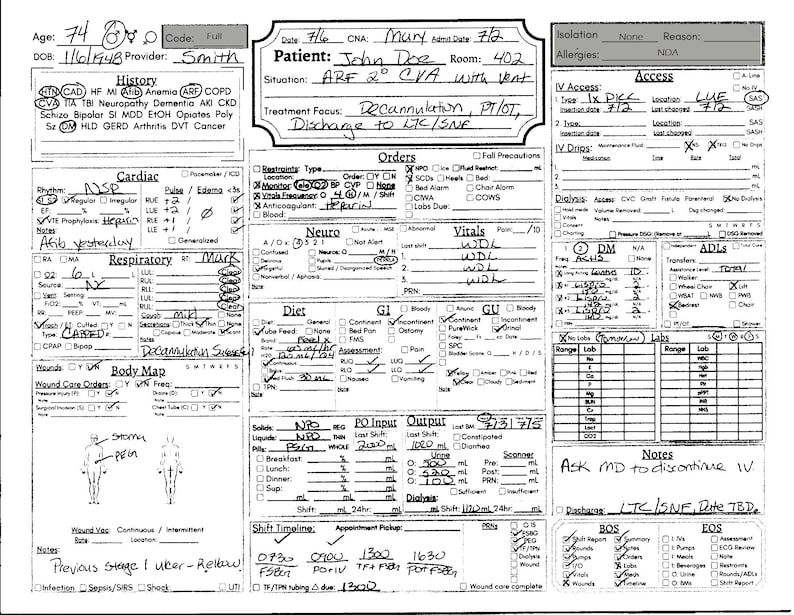 Age: 74
Code: Full
DOB: 1/6/1948 Provider: Smith
Date: 7/6 CNA: Mary Admit Date: 7/2
Patient: John Doe Room: 402
Situation: ARF 2° CVA with vent
Treatment Focus: Decannulation, PT/OT,
Discharge to LTC/SNF
Isolation None Reason:
Allergies: NDA
History
HTN CAD HF MI Afib Anemia ARF COPD
CVA TIA TBI Neuropathy Dementia AKI CKD
Schizo Bipolar SI MDD EtOH Opiates Poly
Sz DM HLD GERD Arthritis DVT Cancer
Cardiac
Pacemaker / ICD
Rhythm: NSR Pulse / Edema <3s
S1 S2 Regular Irregular RUE +2
EF: % LUE +2
VTE Prophylaxis: Heparin RLE +1
Notes: LLE +1
Afib yesterday Generalized
Respiratory RT: Mark
RA MA LUL: Clear
O2: 6 L LLL: Clear
Source: NC RUL: Clear
Vent: Setting RML: Clear
FiO2: % VT: mL RLL: Clear
RR: PEEP: MV: Cough: mild None
Trach / ET Cuffed: Y N Secretions: Thick Thin None
Type: CAPPED Copious Moderate Scant
CPAP Bipap Decannulation Successful
Wounds: Y N S M T W R F S
Body Map
Wound Care Orders: Y N Freq:
Pressure Injury (P): Y N Drains (D): Y N
Note:
Surgical Incision (S) Y N Chest Tube (C) Y N
Note:
Stoma
PEG
Wound Vac: Continuous / Intermittent
Rate: Location:
Notes:
Previous stage 1 ulcer - Rt elbow
Infection Sepsis/SIRS Shock: UTI
Orders
Fall Precautions
Restraints: Type
Location: Order: Y N
Monitor: Tele O2 BP CVP None
Vitals Frequency: Q 4 H / M / Shift
Anticoagulant: Heparin
Blood:
NPO Ice Fluid Restrict: mL
SCDs Heels Bed
Bed Alarm Chair Alarm
CIWA COWS
Labs Due:
Neuro
Acute / MSE
A / O x: 4 3 2 1 Not Alert
Confused Neuro: Q M / H
Delirious Pupils PERRLA
Forgetful Slurred / Disorganized Speech
Nonverbal / Aphasia
Note:
Vitals
Abnormal Pain: /10
Last shift WDL
1. WDL
2. WDL
3. WDL
PRN:
Diet
Diet: General
Tube Feed: None
Brand:
Rate:
H2O:
Continuous
Bolus
Med Flush 30 mL
TPN:
Note:
GI
Continent Incontinent
Bed Pan Ostomy
FMS
Assessment: Pain
RUQ LUQ
RLQ LLQ
Nausea Vomiting
Note:
GU
Anuric GU BSC
Continent Incontinent
PureWick Urinal
Foley: Fr cc Date:
SPC
Bladder Scans: Q H / D / S
Yellow Amber Pink Red
Clear Cloudy Sediment
Note:
PO Input
Solids: NPO REG Last Shift:
Liquids: NPO THIN 2000 mL
Pills: PEG WHOLE
Breakfast: % mL
Lunch: % mL
Dinner: % mL
Sup: % mL
mL
Shift: mL 24hr: mL
Output
Last Shift: Last BM: 7/3 | 7/5
1020 mL Constipated
Diarrhea
Urine Scanner
O: 300 mL Pre: mL
O: 520 mL Post: mL
O: 100 mL PRN: mL
Sufficient Insufficient
Dialysis:
mL Shift: mL 24hr: mL
Shift Timeline: Appointment Pickup: PRNs
0730 0900 1300 1630
FSBG PO+IV TF+FSBG
TF/TPN tubing Δ due: 1300
Q 15
FSBG
PEG
TF/TPN
Dialysis
Wound
Wound care complete
Access
A- Line
IV Access: No IV
1. Type: 1x PICC Location: LUE SAS
Insertion date 7/2 Last changed 7/2 SASH
2. Type: Location: SAS
Insertion date Last changed SASH
IV Drips: Maintenance Fluid: NS TKO No Drips
Medication Time Rate Total
1. mL
2. mL
3. mL
Dialysis: Access: CVC Graft Fistula Parenteral No Dialysis
Hold meds Volume Removed: L Dsg changed:
Vitals Notes:
Consent S M T W R F S
Charting Pressure DSG: Remove at DSG Removed
1 2 DM N/A
Freq: ACHS None
Notes:
ADLs
Independent Total Care
Transfers:
Assistance Level: TOTAL
Walker:
Wheel Chair Lift
WBAT NWB PWB
Bedrest
PT/OT: Shower
No Labs (Tomorrow) Labs S M T W R F S
Range Lab Range Lab
Na WBC
K Hgb
Ca Hct
P Plt
Mg aPTT
BUN INR
Cr NH3
Trop
Lact
CO2
Notes
Ask MD to discontinue IV.
Discharge: LTC/SNF, Date TBD.
BOS EOS
Shift Report Summary I: IVs Assessment
Rounds Notes I: Pumps ECG Review
Pumps Orders I: Meals Note
I/O Labs I: Beverages Restraints
Vitals Meds O: Urine Rounds/ADLs
Wounds Timeline O: BMs Shift Report